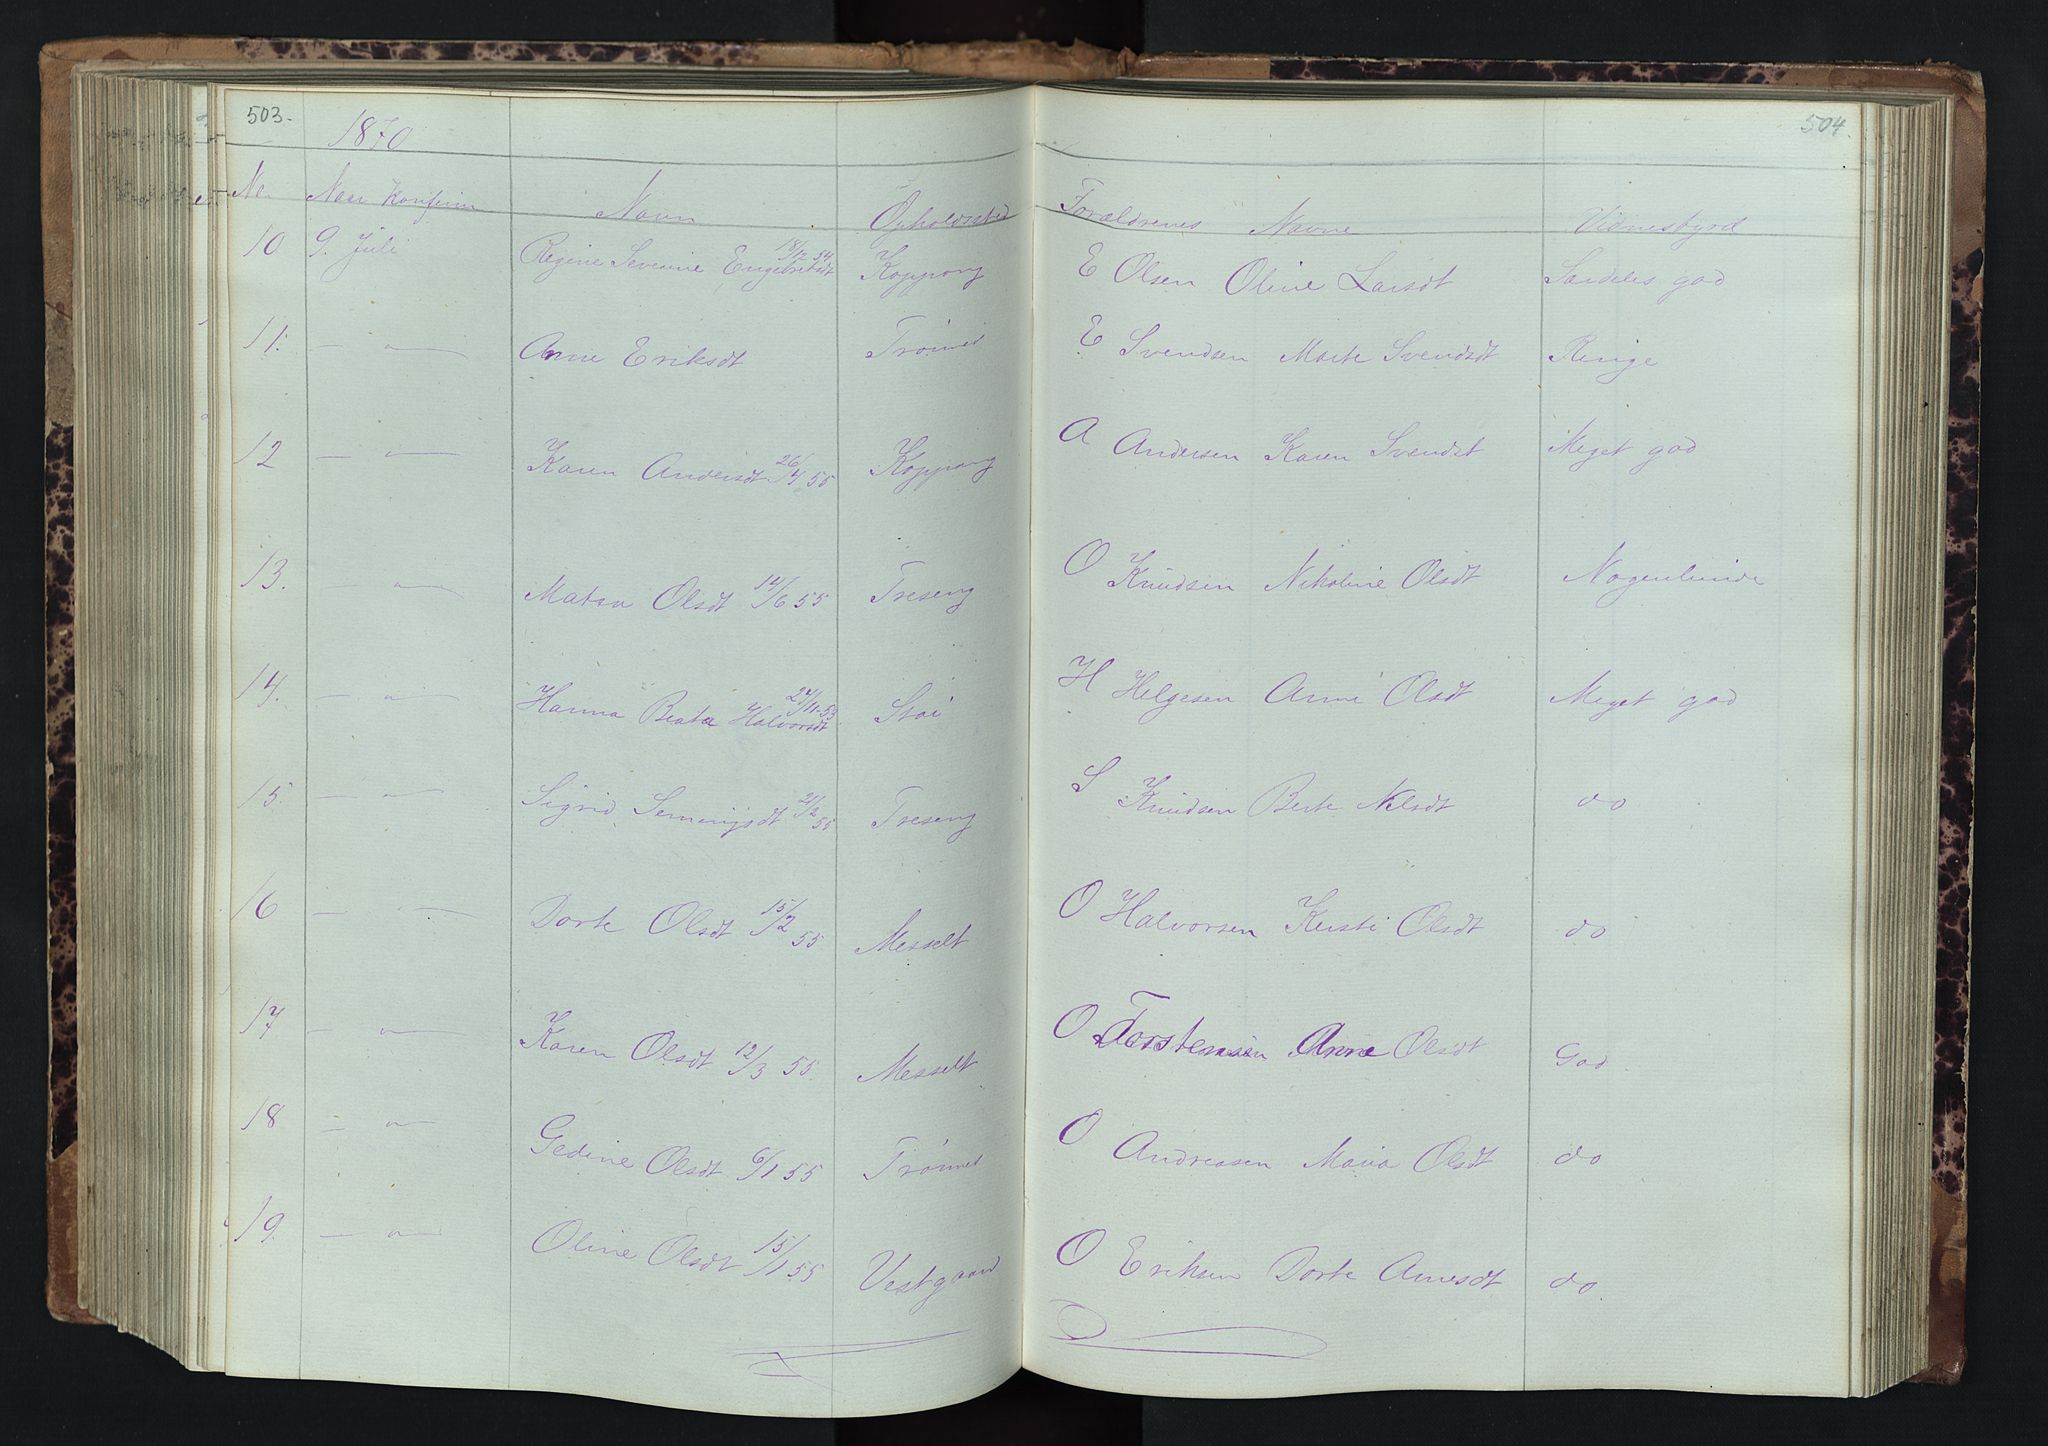 503. 504.
1870
No. Naar Konfirm Navn Opholdssted Forældrenes Navne Vidnesbyrd
10 9. Juli Regine Severine Engebretsdt 18/12 54 Koppang E Olsen Oline Larsdt Særdeles god
11. — " — Anne Eriksdt Trønnes E Svendsen Marte Svendsdt Ringe
12 — " — Karen Andersdt 26/4 55 Koppang A Andersen Karen Svendst Meget god
13. — " — Matea Olsdt 14/6 55 Treseng O Knudsen Nikoline Olsdt Nogenlunde
14. — " — Hanna Beata Halvorsdt 24/11 53 Stai H Helgesen Anne Olsdt Meget god
15. — " — Sigrid Semingsdt 21/2 55 Treseng S Knudsen Berte Nilsdt do
16 — " — Dorte Olsdt 15/2 55 Messelt O Halvorsen Kersti Olsdt do
17 — " — Karen Olsdt 12/3 55. Messelt O Torstensen Anne Olsdt God
18 — " — Gedine Olsdt 6/1 55 Trønnes O Andreasen Maria Olsdt do
19. — " — Oline Olsdt 15/1 55 Vestgaard O Eriksen Dorte Arnesdt do